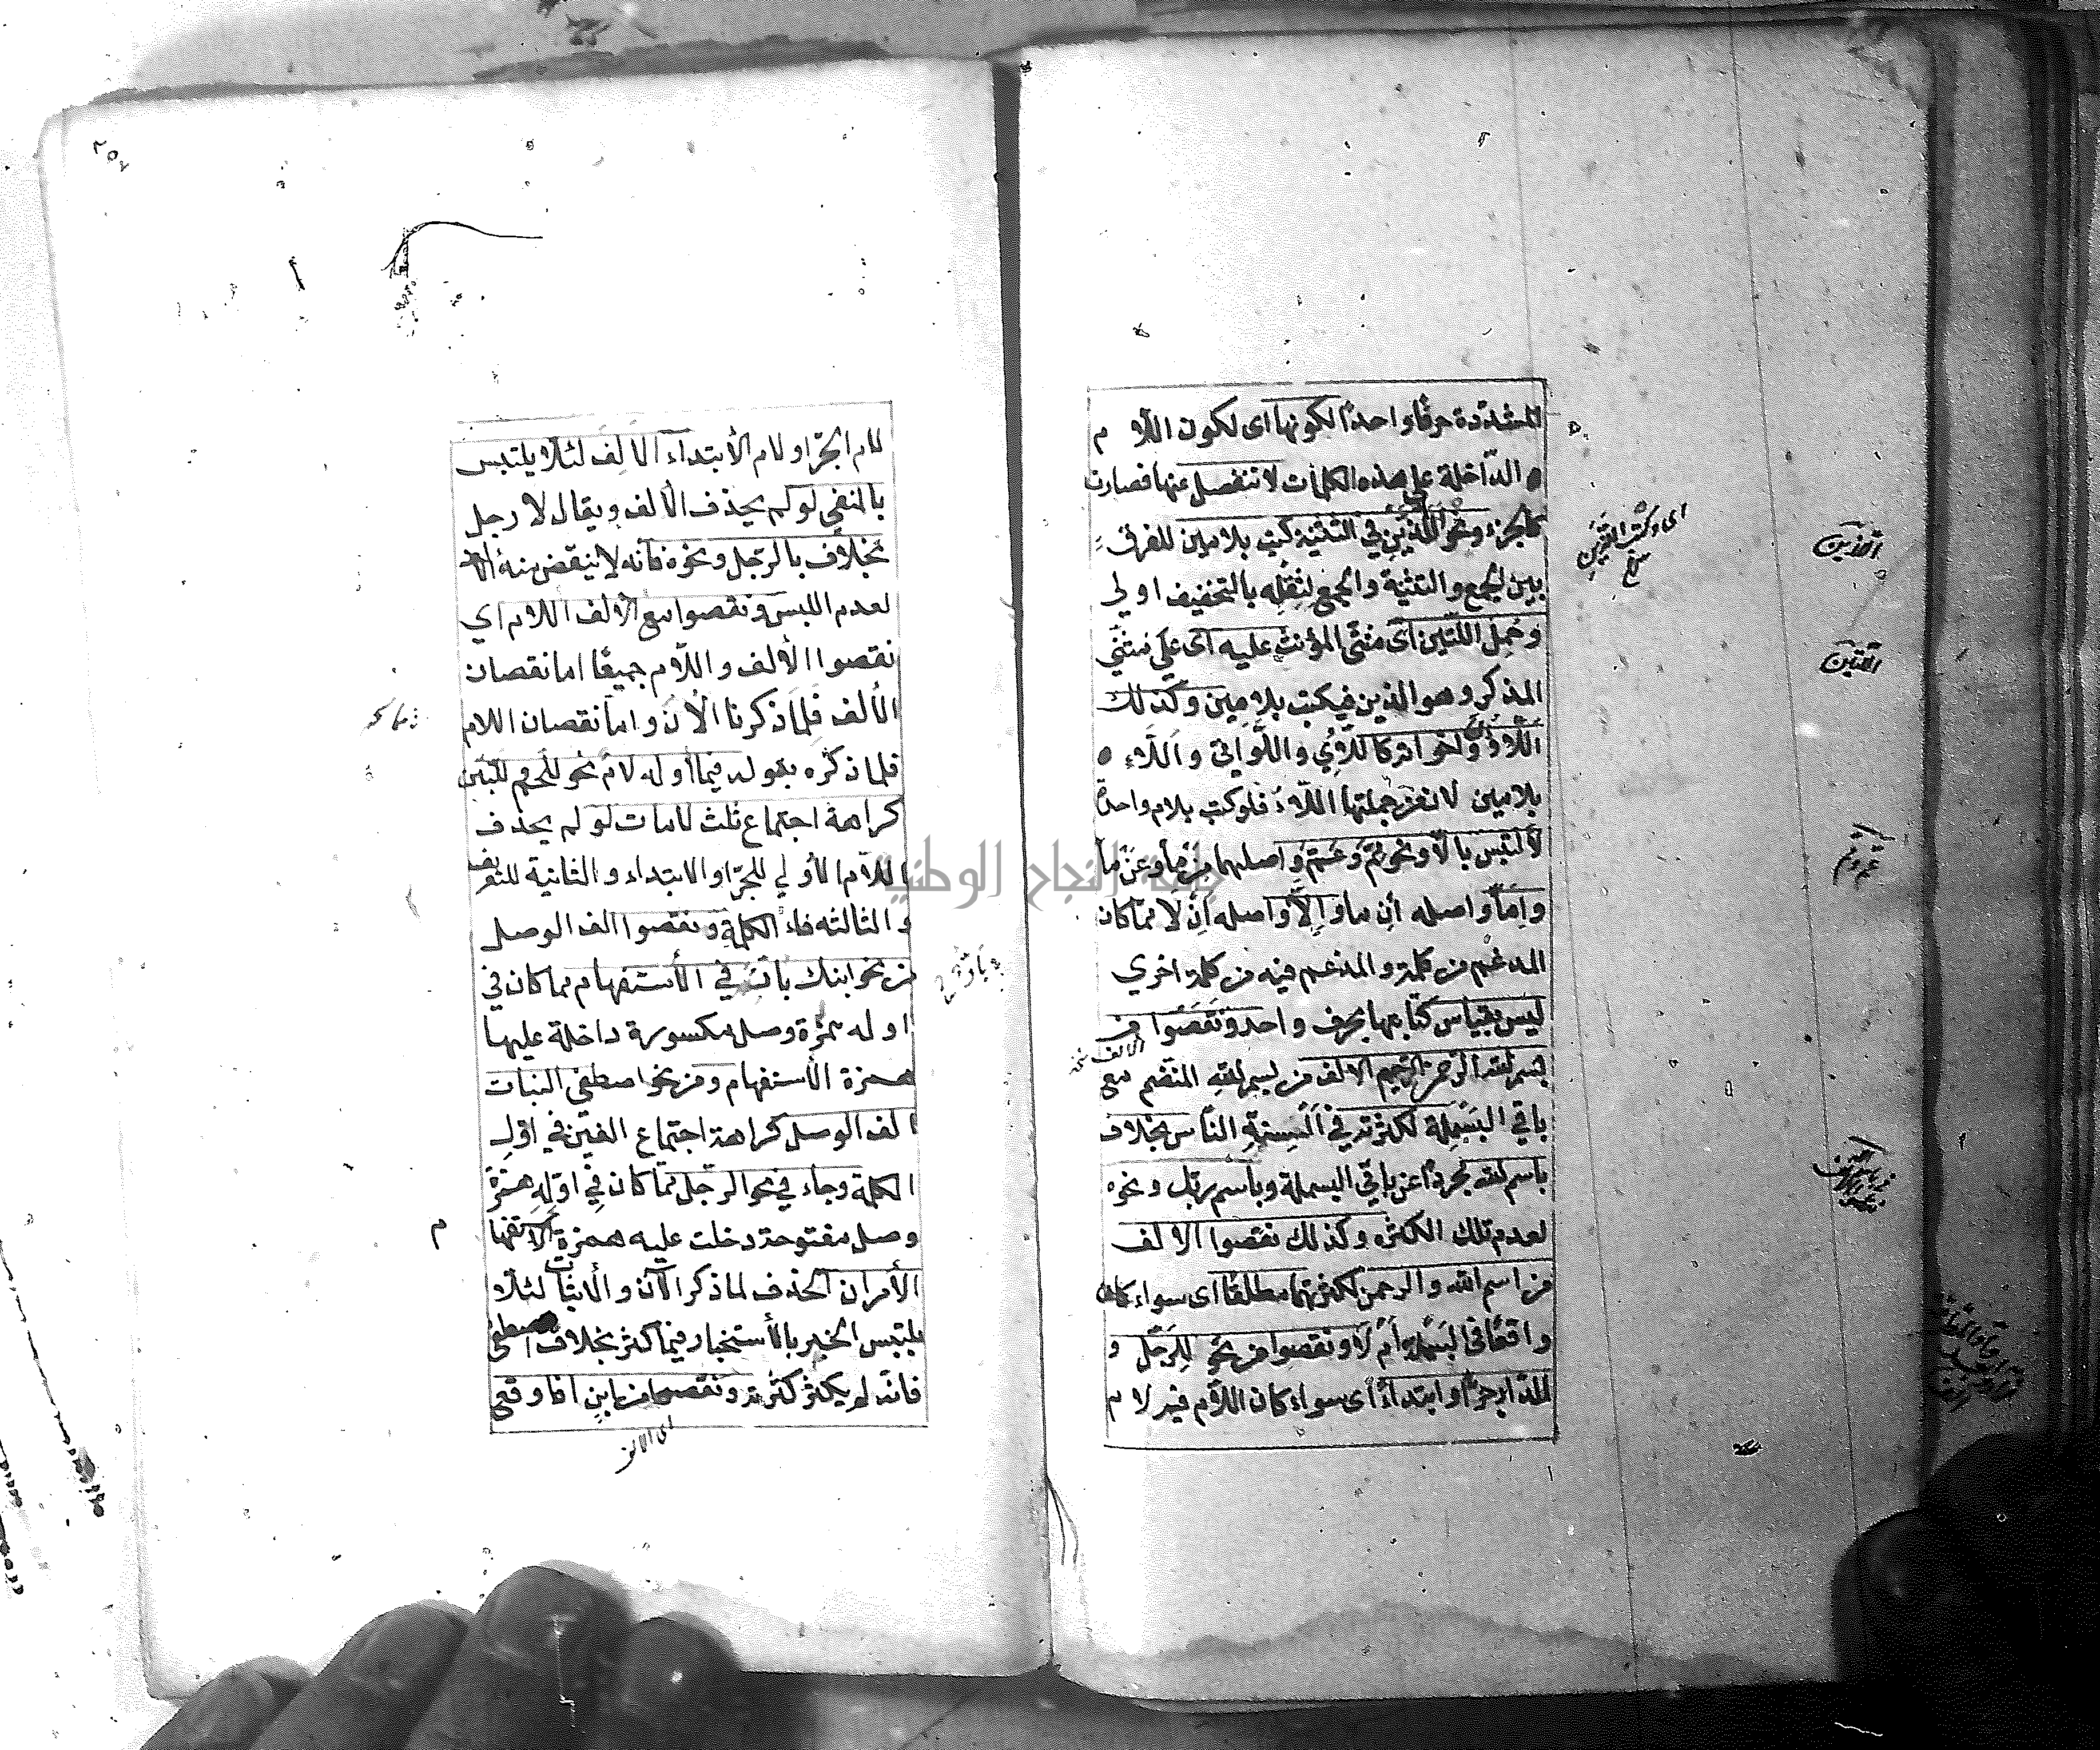 المشدّدة حرفًا واحدًا لكونها اى لكون اللّام
الدّاخلة على هذه الكلمات لا تنفصل عنها فصارت
كالجزء ونحو اللذين في التثنية كتب بلامين للفرق
بين الجمع والتثنية والجمع لثقله بالتخفيف اولي
وحُمِل اللّتين اى مثنّى المؤنث عليه اى على مثنّي
المذكر وهو الذين فيكتب بلامين وكذلك
واخواته كاللّائي واللّواتي واللّاءِ
بلامين لانّ من جملتها اللّاء فلو كتب بلام واحدة
لالتبس بالّا ونحو ممّ وعمّ واصلهما من ما وعن ما
وامّا واصله أن ما وإلّا واصله ان لا ممّا كان
المدغم من كلمة والمدغم فيه من كلمة اخري
ليس بقياس كتابتها بحرف واحد ونقصوا من
الالف نسخه
بسم الله الرحمن الرحيم الالف من بسم الله المنضم مع
باقي البسملة لكثرته في ألسنة النّاس بخلاف
باسم الله مجرّدًا عن باقي البسملة وباسم ربّك ونحوه
لعدم تلك الكثره وكذلك نقصوا الالف
من اسم الله والرحمن لكثرتهما مطلقًا اى سواء كان
واقعًا في البَسْملة أم لا ونقصوا من نحو للرّجل و
للدّار جرًّا وابتداءً اى سواء كان اللّام فيه لام
اللذين
اللتين
عم ومم
لام الجرّ او لام الأبتداء الالف لئلّا يلتبس
بالمنفي لو لم يحذف الالف ويقال لا رجل
بخلاف بالرّجل ونحوه فانه لا ينقض منه الالف
لعدم اللبس ونقصوا مع الالف اللام اي
نقصوا الألف واللّام جميعًا اما نقصان
الألف فلما ذكرنا الأن واما نقصان اللام
فلما ذكره بقوله فيما أوله لام نحو للّحم للّبن
كراهة اجتماع ثلث لامات لو لم يحذف
اللّام الأولي للجرّ او الابتداء والثانية للتعريف
والثالثه فاء الكلمة ونقصوا الف الوصل
من نحو ابنك بارّ في الأستفهام مما كان في
اوله همزة وصل مكسورة داخلة عليها
همزة الأستفهام ومن نحو اصطفى البنات
الف الوصل كراهة اجتماع الفين في اوّل
الكلمة وجاء في نحو الرّجل ممّا كان في اوّله همزة
وصل مفتوحة دخلت عليه همزة الاستفهام
الأمران الحذف لما ذكر الآن والأثبات لئلّا
يلتبس الخبر بالأستخبار فيما كثر بخلاف اصطفى
فانّه لم يكثر كثرته ونقصوا من ابن اذا وقع
اى الالف
جامعة النجاح الوطنية